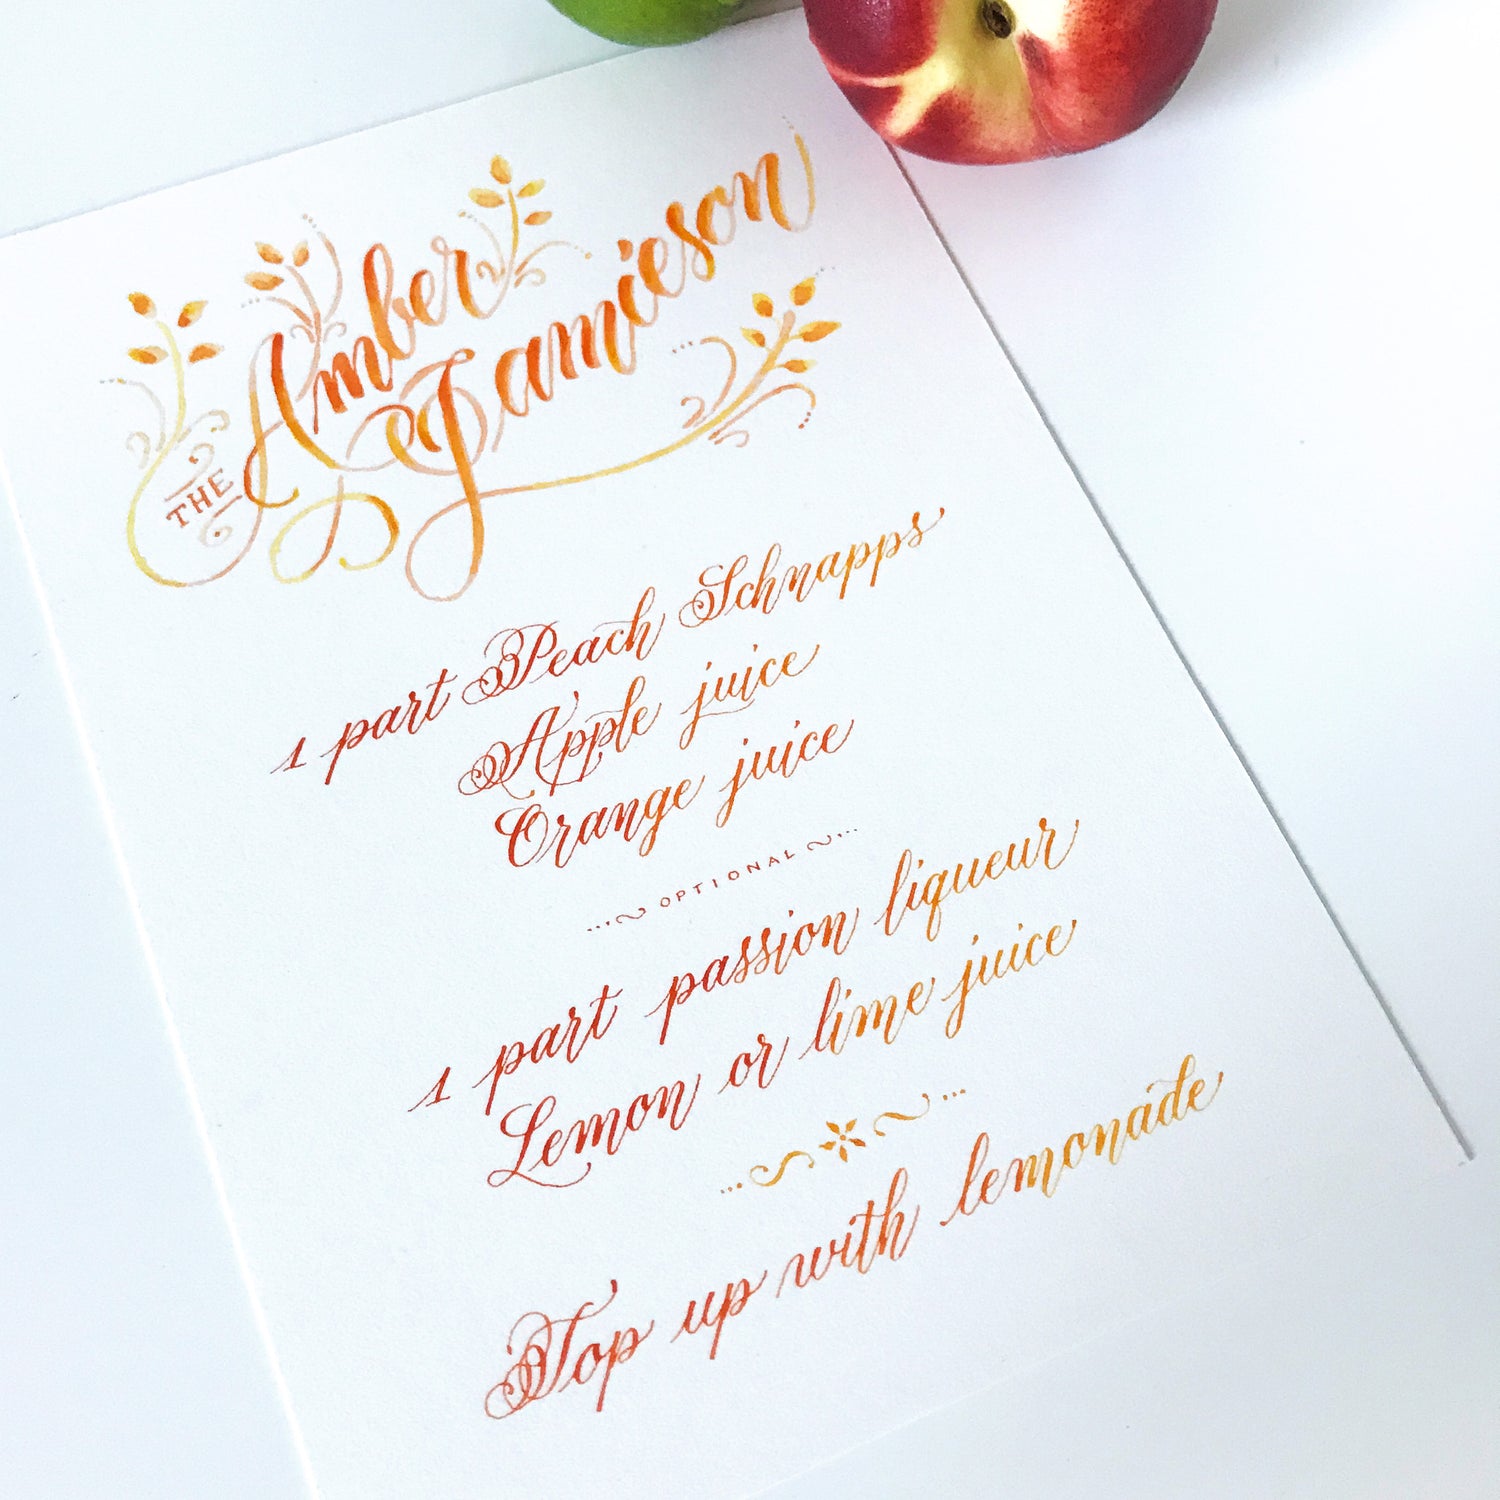 THE
Amber
Jamieson
1 part Peach Schnapps
Apple juice
Orange juice
OPTIONAL
1 part passion liqueur
Lemon or lime juice
Top up with lemonade